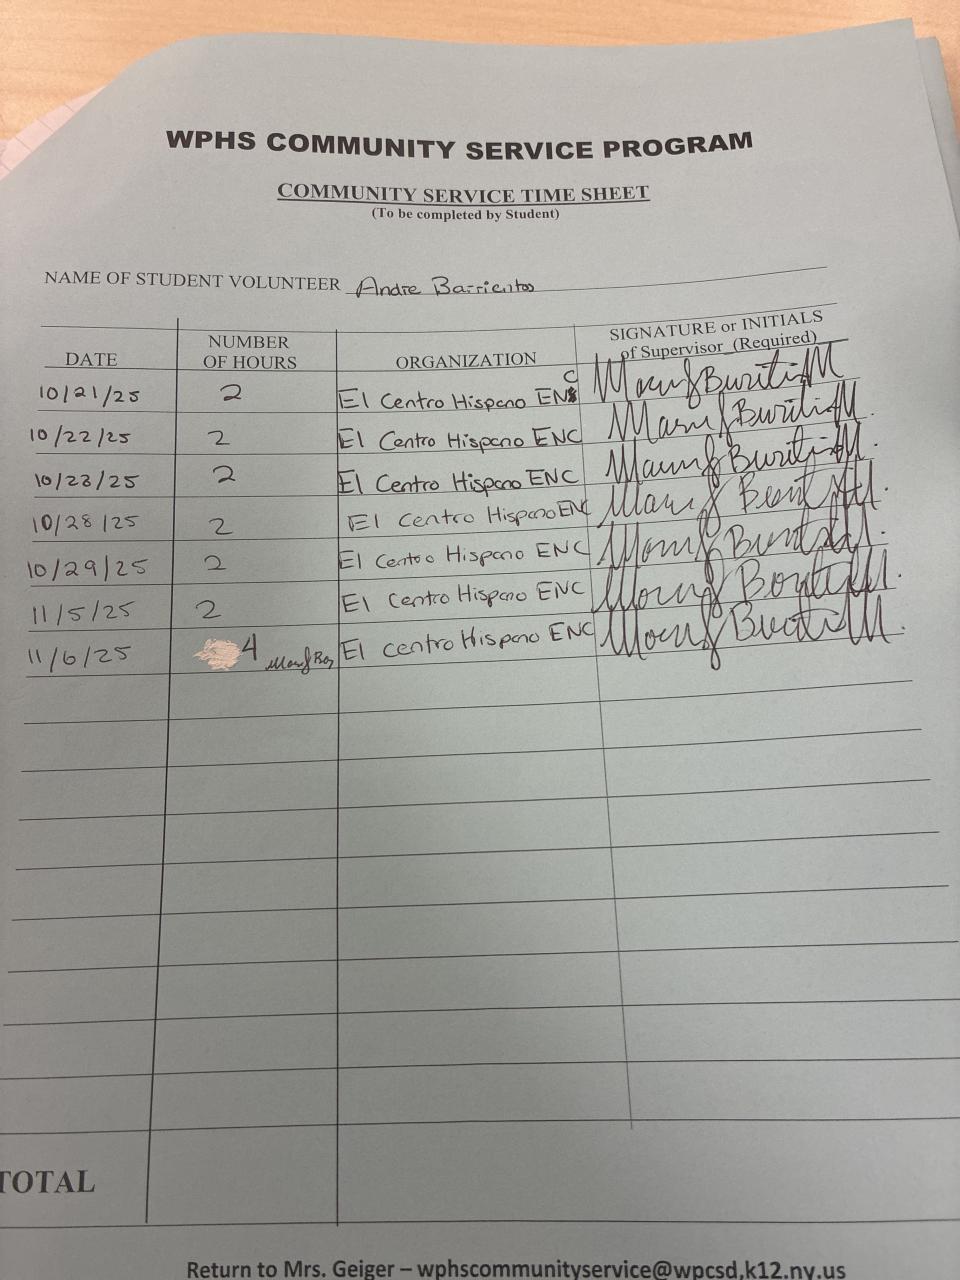 WPHS COMMUNITY SERVICE PROGRAM
COMMUNITY SERVICE TIME SHEET
(To be completed by Student)
NAME OF STUDENT VOLUNTEER Andre Barrientos
DATE NUMBER OF HOURS ORGANIZATION SIGNATURE or INITIALS of Supervisor (Required)
10/21/25 2 El Centro Hispano ENC
10/22/25 2 El Centro Hispano ENC
10/23/25 2 El Centro Hispano ENC
10/28/25 2 El Centro Hispano ENC
10/29/25 2 El Centro Hispano ENC
11/5/25 2 El Centro Hispano ENC
11/6/25 4 El centro Hispano ENC
TOTAL
Return to Mrs. Geiger – wphscommunityservice@wpcsd.k12.ny.us